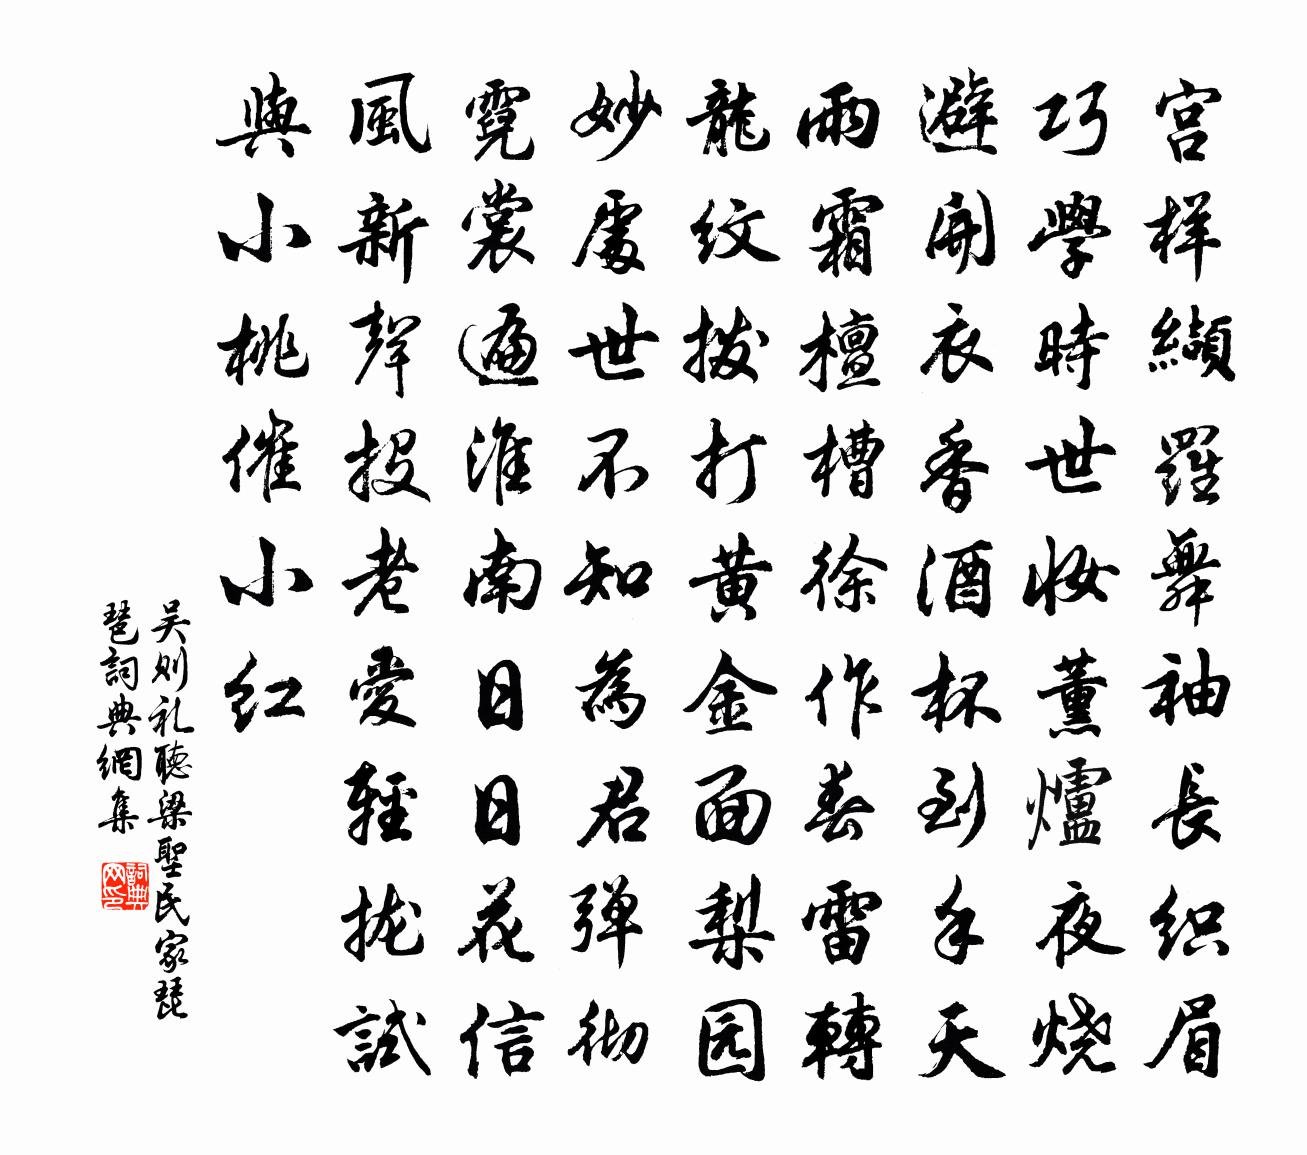 宫样纈羅舞袖長织眉
巧學時世妆薰爐夜烧
避開衣香酒杯到手天
雨霜檀槽徐作春雷轉
龍纹撥打黄金面梨园
妙處世不知為君弹彻
霓裳遍淮南日日花信
風新聲投老愛輕拢試
與小桃催小红
吴则礼聽梁聖民家琵
琶詞典網集
詞典
网印